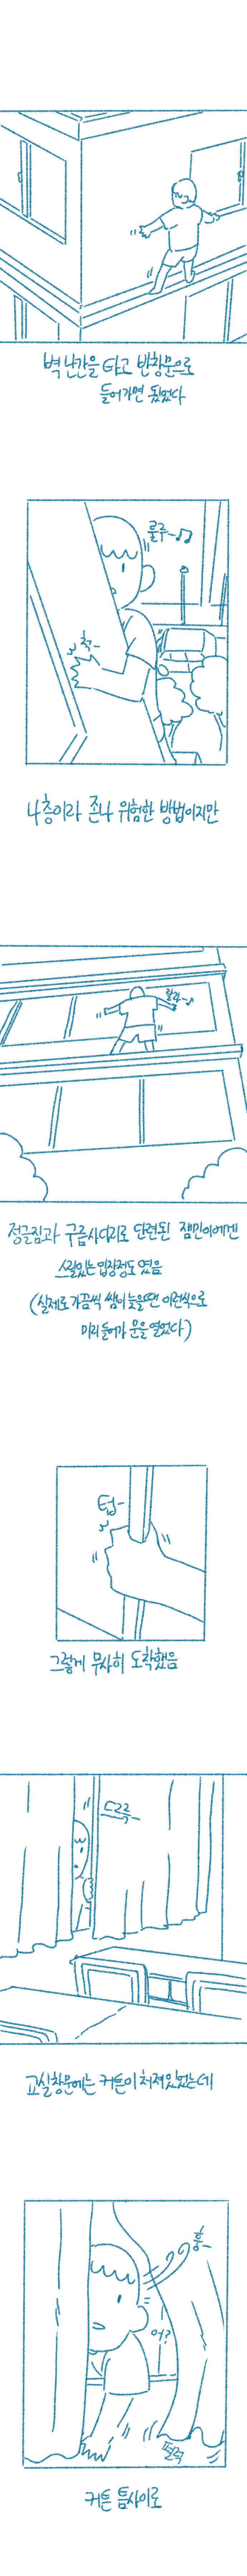 벽 난간을 타고 반창문으로
들어가면 됬었다
룰루~♪♫
척~
4층이라 존나 위험한 방법이지만
랄라~♪
정글짐과 구름사다리로 단련된 잼민이에겐
스릴있는 입장정도 였음
(실제로 가끔씩 쌤이 늦을땐 이런식으로
미리 들어가 문을 열었다)
텁-
그렇게 무사히 도착했음
드르륵-
교실창문에는 커튼이 쳐져있었는데
휭-
어?
펄럭
커튼 틈사이로